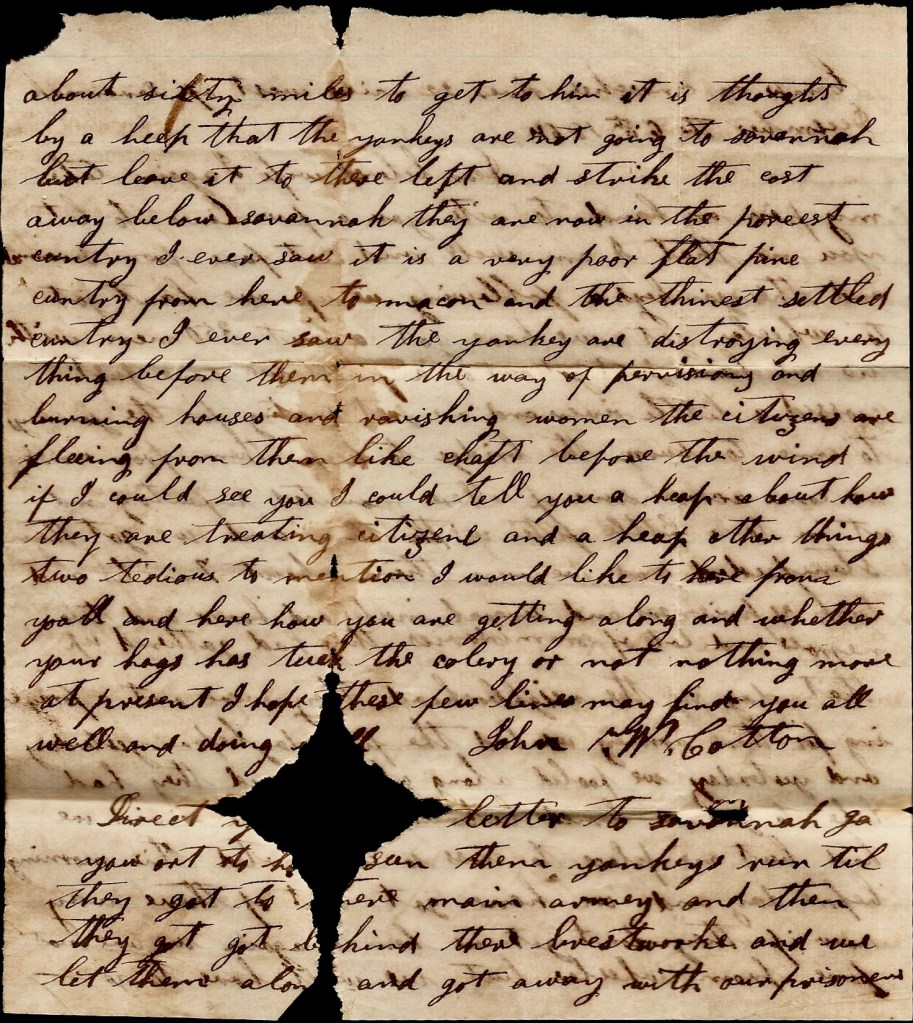 about sixty miles to get to him it is thoughts
by a heep that the yankeys are not going to savannah
but leave it to there left and strike the cost
away below savannah they are now in the poreest
cuntry I ever saw it is a very poor flat pine
cuntry from here to macon and the thinest settled
cuntry I ever saw the yankey are distroying every
thing before them in the way of pervisions and
burning houses and ravishing women the citizens are
fleeing from them like chaft before the wind
if I could see you I could tell you a heap about how
they are treating citizens and a heap other things
two tedious to mention I would like to here from
yoall and here how you are getting along and whether
your hogs has tuck the colery or not nothing more
at present I hope these few lines may find you all
well and doing John W. Cotton
Direct letter to savannah ga
you ort to seen them yankeys run til
they got to there main armey and then
they got got behind there brestworke and we
let them alon and got away with our prisoners